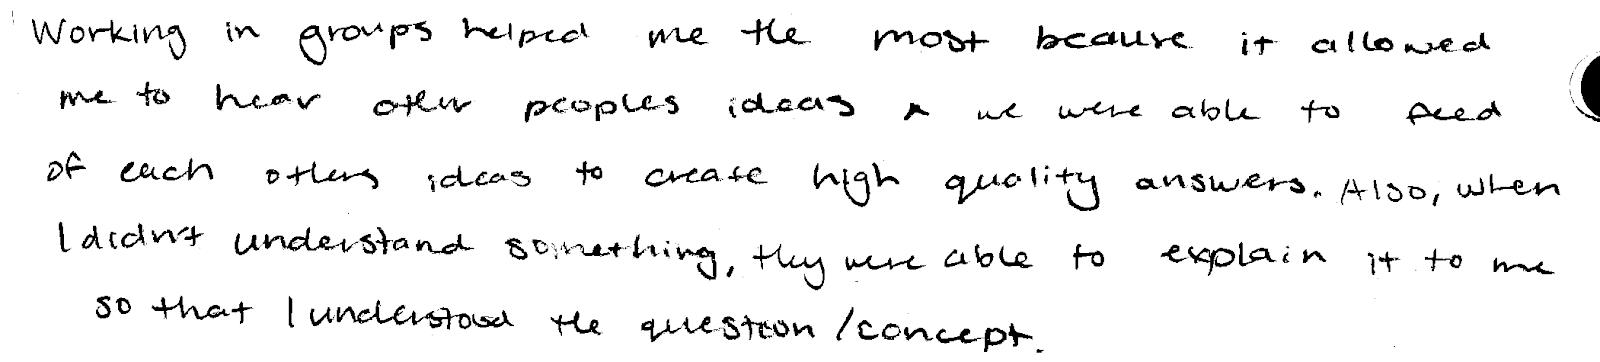 Working in groups helped me the most because it allowed
me to hear other peoples ideas & we were able to feed
of each others ideas to create high quality answers. Also, when
I didn't understand something, they were able to explain it to me
so that I understood the question/concept.